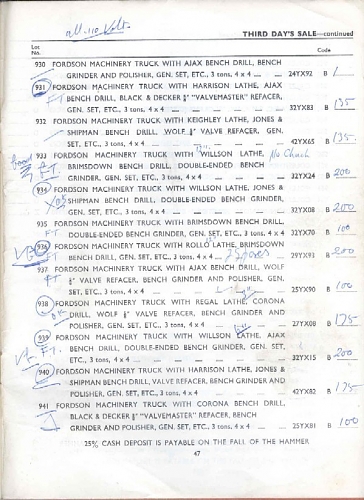 all 110 Volts
THIRD DAY'S SALE—continued
Lot No. Code
930 FORDSON MACHINERY TRUCK WITH AJAX BENCH DRILL, BENCH
GRINDER AND POLISHER, GEN. SET, ETC., 3 tons, 4 x 4 24YX92 B
931 FORDSON MACHINERY TRUCK WITH HARRISON LATHE, AJAX
BENCH DRILL, BLACK & DECKER "VALVEMASTER" REFACER,
GEN. SET, ETC., 3 tons, 4 x 4 32YX83 B 135
932 FORDSON MACHINERY TRUCK WITH KEIGHLEY LATHE, JONES &
SHIPMAN BENCH DRILL, WOLF VALVE REFACER, GEN.
SET, ETC., 3 tons, 4 x 4 42YX65 B 135
933 FORDSON MACHINERY TRUCK WITH WILLSON LATHE, No Chuck
BRIMSDOWN BENCH DRILL, DOUBLE-ENDED BENCH
GRINDER, GEN. SET, ETC., 3 tons, 4 x 4 32YX24 B 200
934 FORDSON MACHINERY TRUCK WITH WILLSON LATHE, JONES &
SHIPMAN BENCH DRILL, DOUBLE-ENDED BENCH
GRINDER, GEN. SET, ETC., 3 tons, 4 x 4 32YX08 B 200
935 FORDSON MACHINERY TRUCK WITH BRIMSDOWN BENCH DRILL,
FT DOUBLE-ENDED BENCH GRINDER, GEN. SET, ETC., 3 tons, 4 x 4 32YX70 B 100
936 FORDSON MACHINERY TRUCK WITH ROLLO LATHE, BRIMSDOWN
BENCH DRILL, GEN. SET, ETC., 3 tons, 4 x 4 29YX91 B 200
937 FORDSON MACHINERY TRUCK WITH AJAX BENCH DRILL, WOLF
FT VALVE REFACER, BENCH GRINDER AND POLISHER, GEN.
SET, ETC., 3 tons, 4 x 4 25YX90 B 100
938 FORDSON MACHINERY TRUCK WITH REGAL LATHE, CORONA
DRILL, WOLF VALVE REFACER, BENCH GRINDER AND
POLISHER, GEN. SET, ETC., 3 tons, 4 x 4 27YX08 B 175
939 FORDSON MACHINERY TRUCK WITH WILLSON LATHE, AJAX
BENCH DRILL, DOUBLE-ENDED BENCH GRINDER, GEN. SET,
ETC., 3 tons, 4 x 4 32YX15 B 200
940 FORDSON MACHINERY TRUCK WITH HARRISON LATHE, JONES &
SHIPMAN BENCH DRILL, VALVE REFACER, BENCH GRINDER AND
POLISHER, GEN. SET, ETC., 3 tons, 4 x 4 42YX82 B 175
941 FORDSON MACHINERY TRUCK WITH CORONA BENCH DRILL,
BLACK & DECKER "VALVEMASTER" REFACER, BENCH
GRINDER AND POLISHER, GEN. SET, ETC., 3 tons, 4 x 4 25YX81 B 100
25% CASH DEPOSIT IS PAYABLE ON THE FALL OF THE HAMMER
47